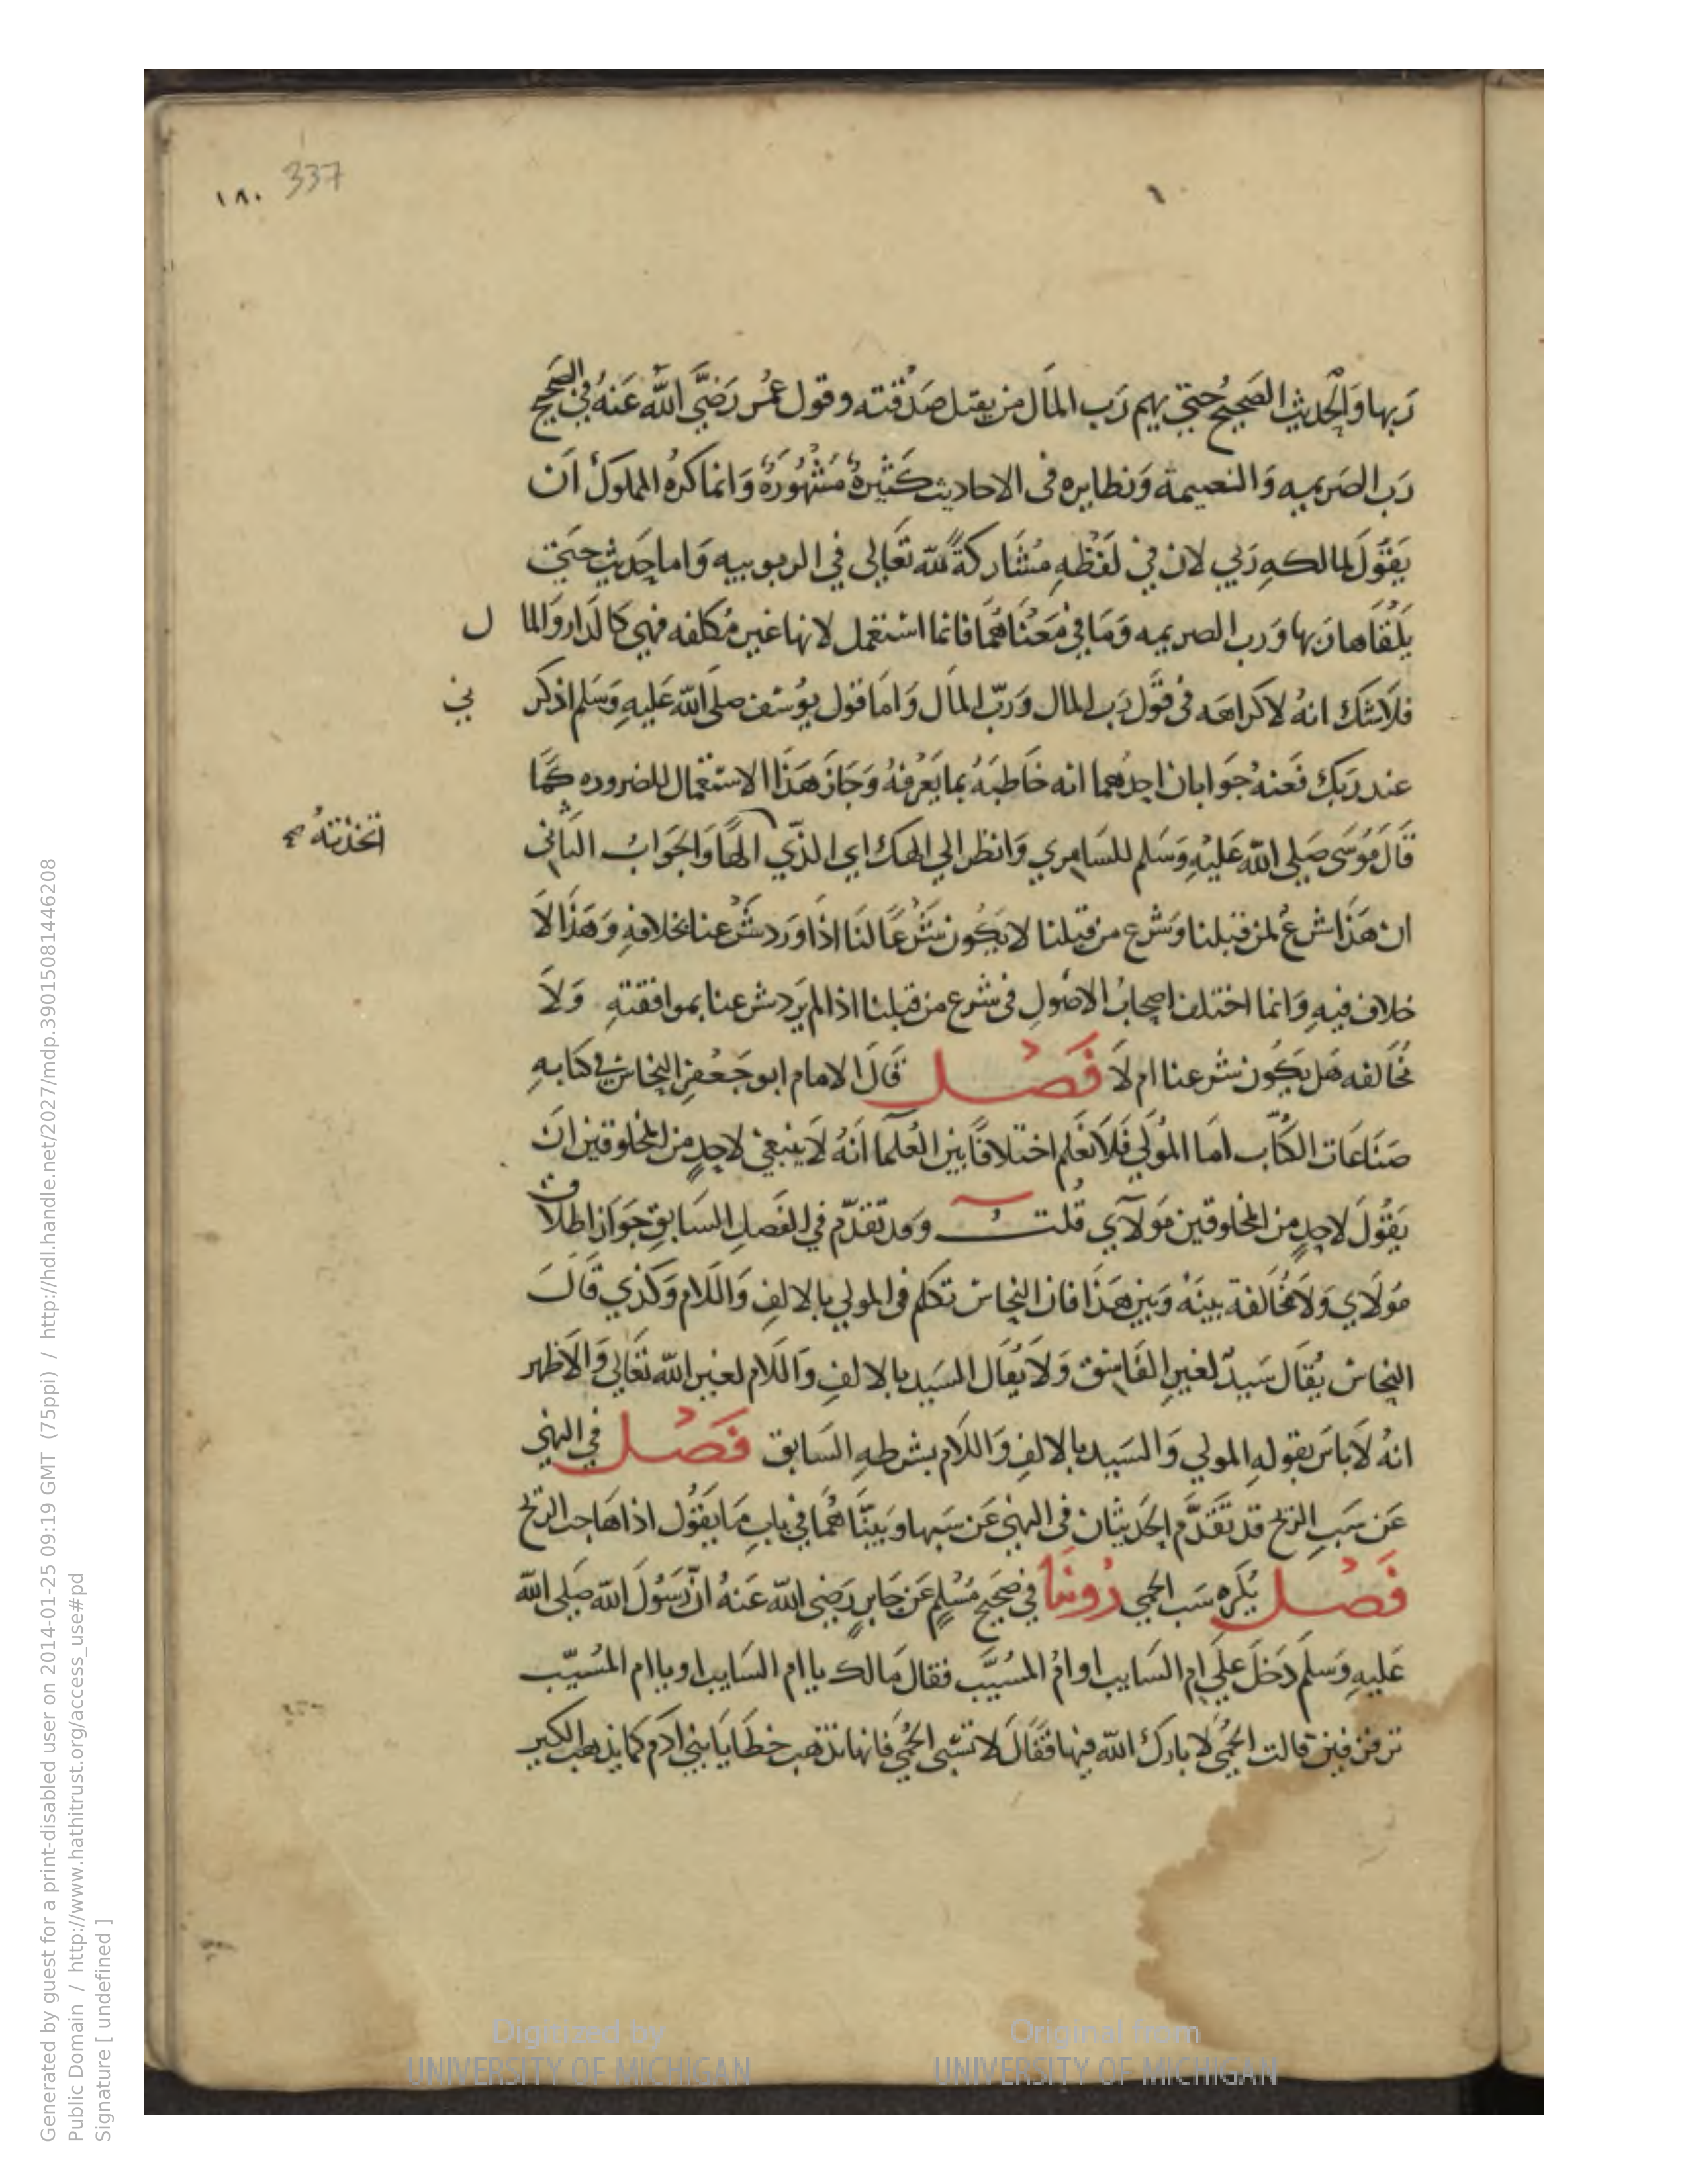 ١٨٠ 337
رَبها وَالحديث الصَحيح حتي يهم رَب المَال من يقبل صَدقته وقول عُمَر رَضِيَ اللّه عَنهُ في الصَحيح
رَب الصَريمه وَالنعيمة وَنظايره في الاحاديث كَثيرةُ مَشْهُورَةُ وَانما كره للملوك اَن
يَقُولَ لمالكهِ رَبي لان فيْ لَفْظِهِ مُشَاركةً للّه تَعَالي في الربوبيه وَاما حَديث حَتي
يَلْقَاها رَبها وَرب الصريمه وَمَا في مَعْنَاهُمَا فانما استعمل لانها غير مُكلفه فهي كالدَار وَالما ل
فلَاشك انهُ لاكراهه في قَول رَب المال وَرَبّ المَال وَامَا قول يوُسُف صلى اللّه عَليهِ وَسَلم اذكر ني
عند رَبك فَعنهُ جَوابان احدُهما انه خَاطبَهُ بما يَعْرفهُ وَجَازَ هَذا الاستعمال للضروره كَمَا
قَالَ مُوسَى صَلى اللّه عَليْهِ وَسَلم للسَامِري وَانظر الي الهك اي الذّي الهًا وَالجَوابُ الثَاني
اتخذتهُ صح
ان هَذَا شرعُ لمن قبلنا وَشرع من قبلنا لا يَكُون شَرْعًا لنَا اذَا وَرَد شَرْعنا بخلافهِ وَهَذَا لاَ
خلاف فيهِ وَانما اختلف اصحابُ الاصُولِ في شرع من قبلنا اذا لم يَرَد شرعنا بموافقتهِ وَلاَ
نُخَالفه هَل يَكُون شرعنا ام لاَ فَصْل قَالَ الامام ابو جَعْفر النحاس في كتابهِ
صَنَاعَات الكُتّاب امَا المَوُلَي فَلَا نَعْلم اختلافًا بين العُلمآ انَهُ لاَ ينبغي لاحدٍ من المخلوقين ان
يَقُولَ لاحدٍ من المخلوقين مَولآي قُلتُ وَقد تقدّم في الفَصل السَابقِ جَوَاز اطلاق
مَولَاي وَلَا مُخَالفة بينَهُ وَبين هَذَا فان النحاس تكلم في المولي بالالفِ وَاللَلام وَكذي قَالَ
النحاس يُقَال سَيدٌ لغير الفَاسق وَلاَ يُقَال السَيد بالالفِ وَاللَلام لغير اللّه تَعَالي وَالاَظهر
انهُ لاَبَاسَ بقولهِ المولي وَالسَيد بالالفِ وَاللَلام بشرطهِ السَابق فَصْل في النهي
عَن سَب الريح قد تَقَدَّم الحَديثان في النهي عَن سَبها وَبَينَّاهُمَا في بابِ مَا يَقُول اذا هَاجت الريح
فَصْل يُكَره سَب الحمي رُوينَا في صَحيح مُسْلمٍ عَن جَابرٍ رَضِي اللّه عَنهُ انَّ رَسُولَ اللّه صَلى اللّه
عَليهِ وَسَلمَ دَخَلَ عَلَي ام السَايب او امُ المُسَيَّب فقال مَالك يا ام السَايب او يا ام المُسيّب
تزفزفين قالت الحُميْ لا بَاركَ اللّه فيهَا فقَالَ لا تسُبي الحُميْ فَانها تذهب خطَايَا بنِي ادَم كما يذهب الكير
Generated by guest for a print-disabled user on 2014-01-25 09:19 GMT (75ppi) / http://hdl.handle.net/2027/mdp.39015081446208
Public Domain / http://www.hathitrust.org/access_use#pd
Signature [ undefined ]
Digitized by
UNIVERSITY OF MICHIGAN
Original from
UNIVERSITY OF MICHIGAN